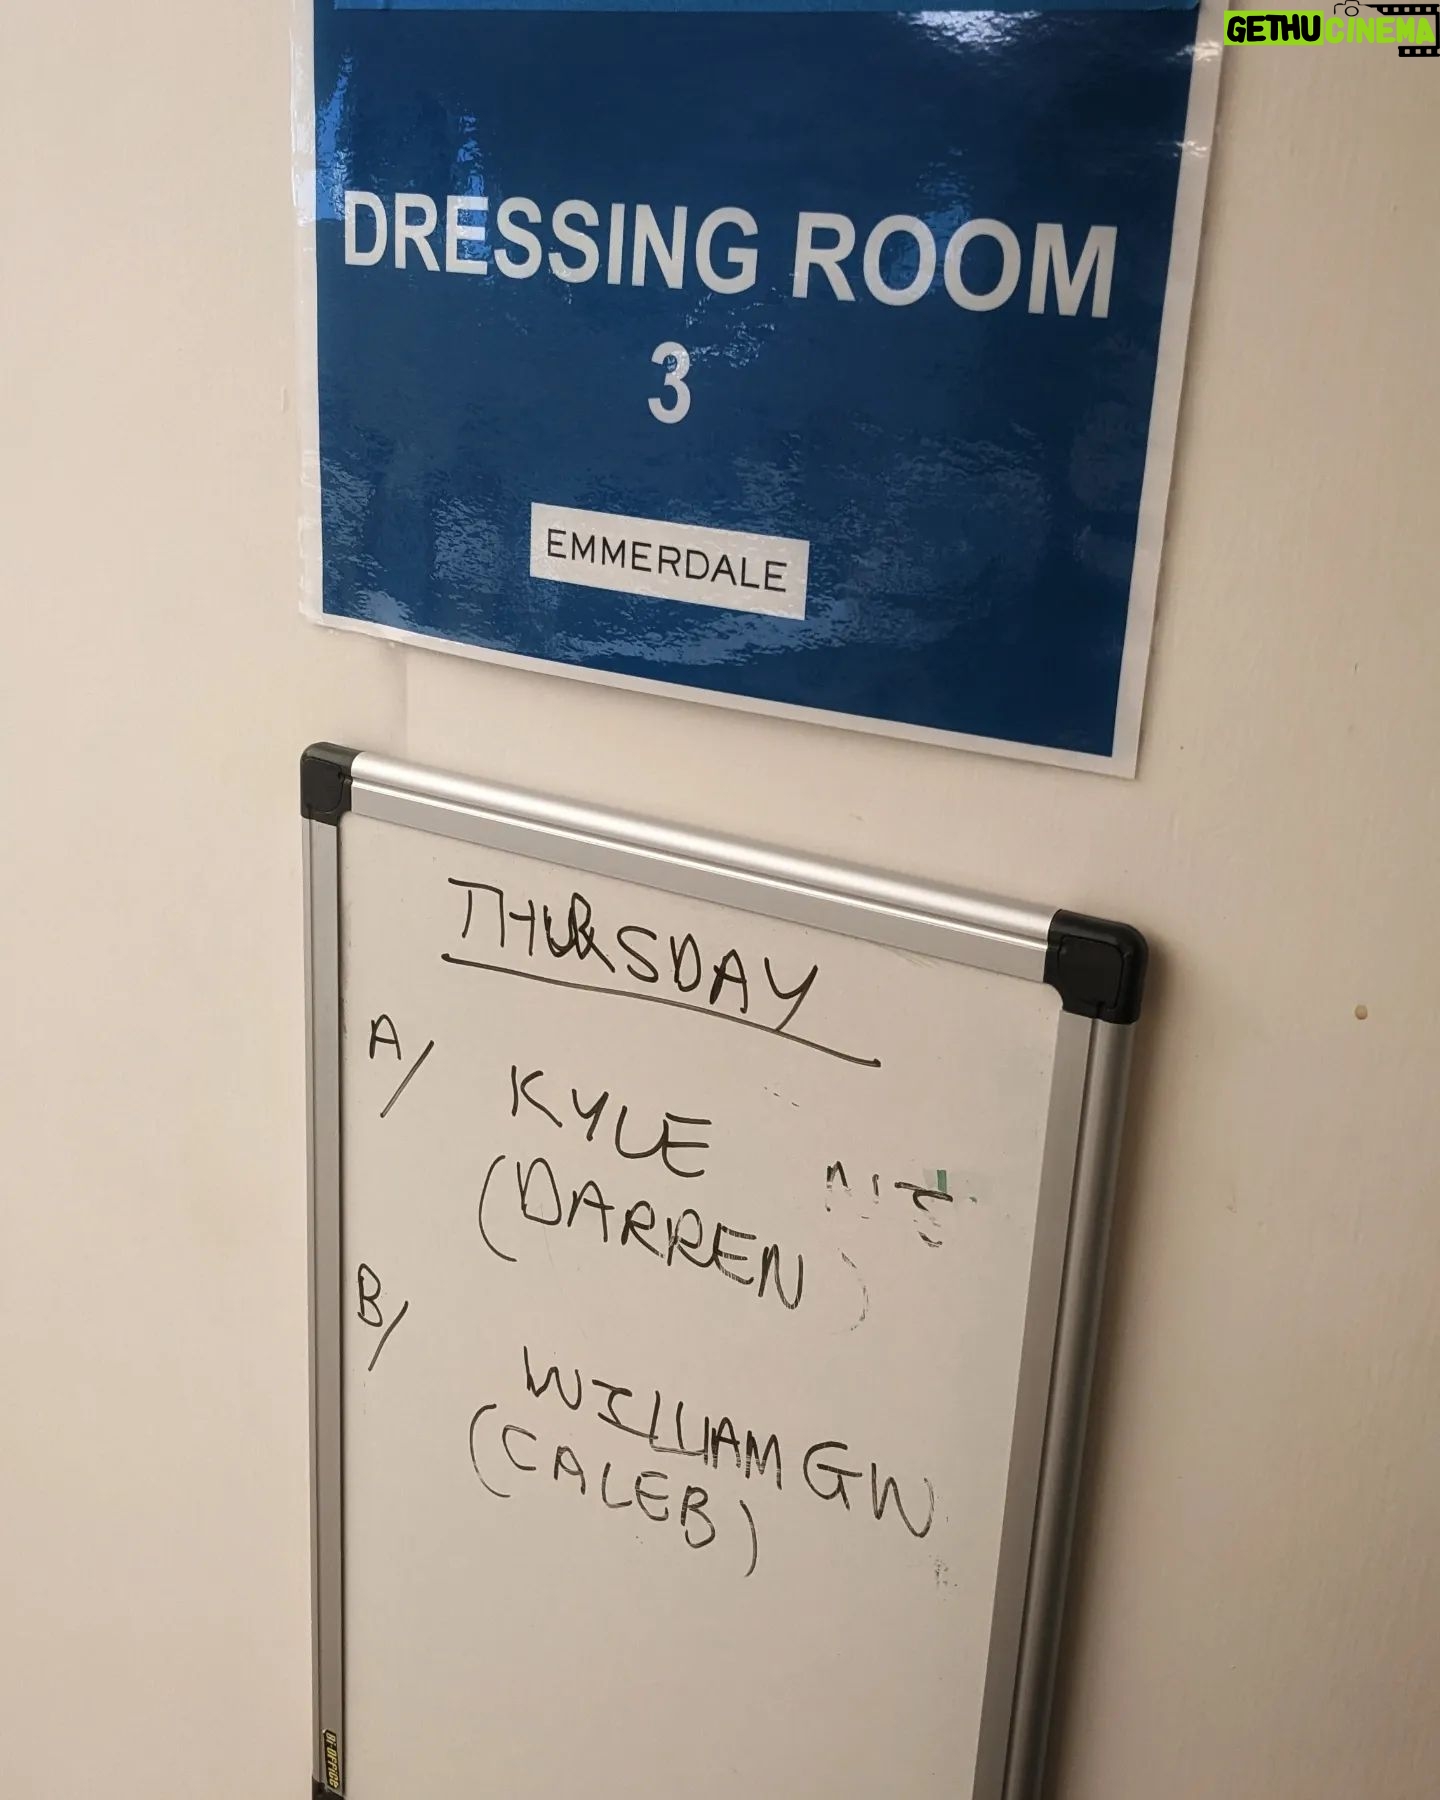 GETHU CINEMA
DRESSING ROOM
3
EMMERDALE
THURSDAY
A/ KYLE
(DARREN)
B/ WILLIAM GW
(CALEB)
Bi-OFFICE